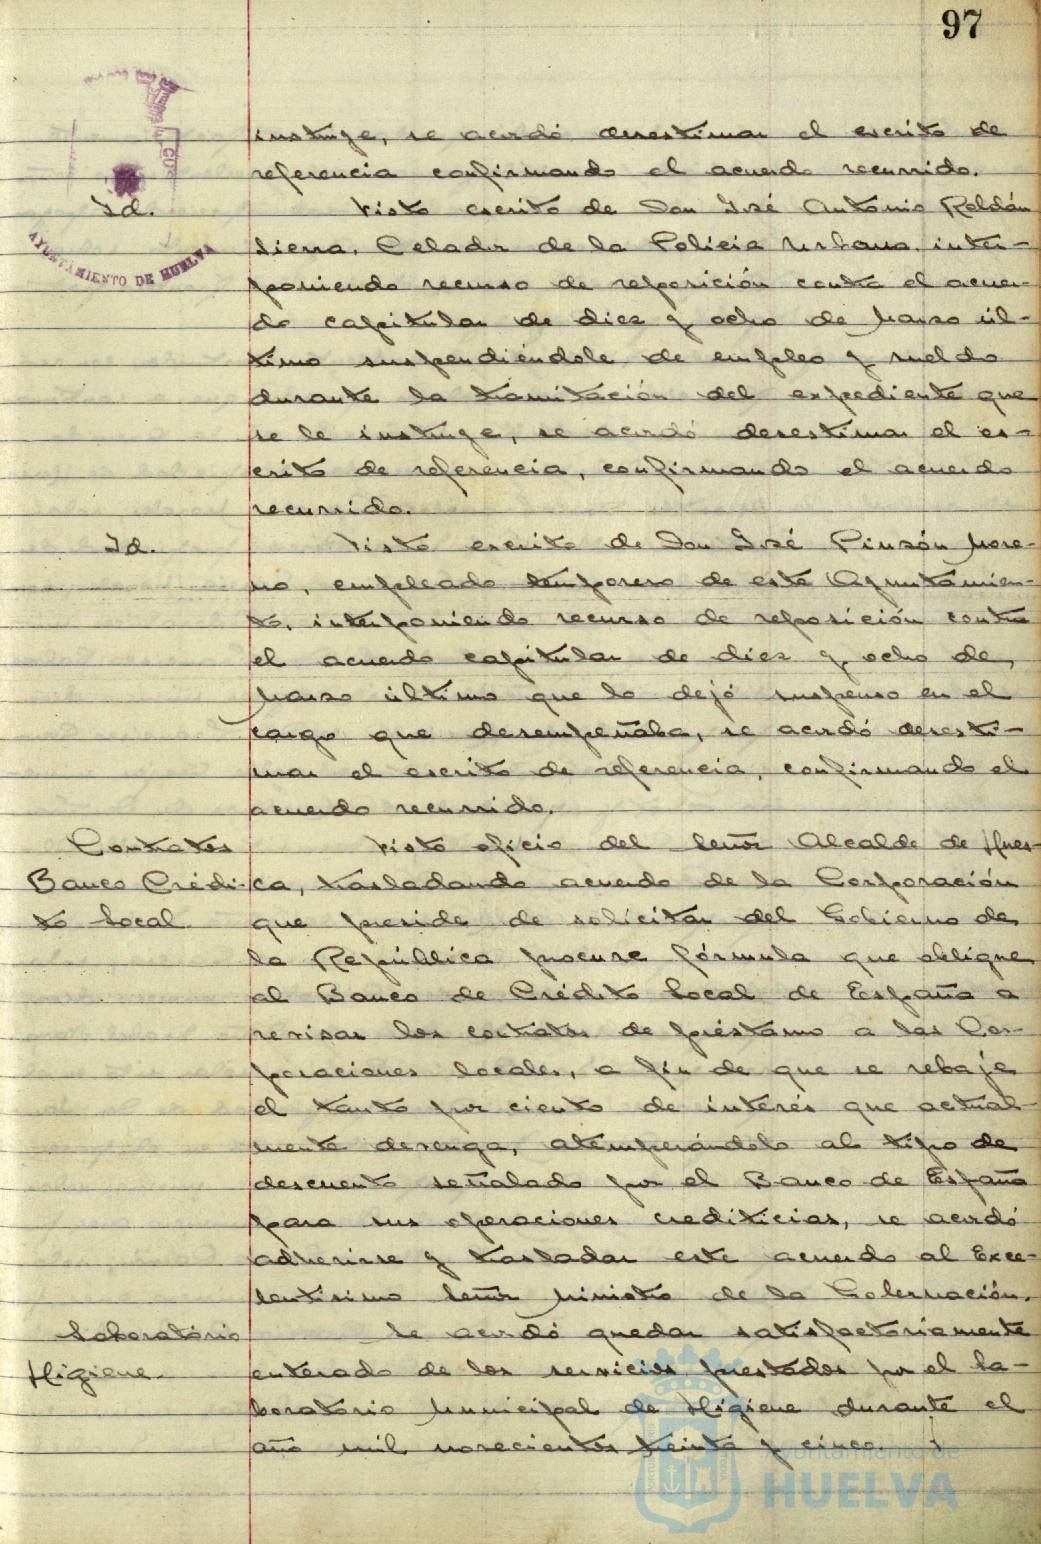 97
instruye, se acordó desestimar el escrito de
referencia confirmando el acuerdo recurrido.
Id.
Visto escrito de Don José Antonio Roldán
Sierra, Celador de la Policía Urbana, inter-
poniendo recurso de reposición contra el acuer-
do capitular de diez y ocho de Marzo úl-
timo suspendiéndole de empleo y sueldo
durante la tramitación del expediente que
se le instruye, se acordó desestimar el es-
crito de referencia, confirmando el acuerdo
recurrido.
AYUNTAMIENTO DE HUELVA
Id.
Visto escrito de Don José Pinzón More-
no, empleado temporero de este Ayuntamien-
to, interponiendo recurso de reposición contra
el acuerdo capitular de diez y ocho de
Marzo último que lo dejó suspenso en el
cargo que desempeñaba, se acordó desesti-
mar el escrito de referencia, confirmando el
acuerdo recurrido.
Contratos
Banco Crédi-
to Local
Visto oficio del Señor Alcalde de Hues-
ca, trasladando acuerdo de la Corporación
que preside de solicitar del Gobierno de
la República procure fórmula que obligue
al Banco de Crédito Local de España a
revisar los contratos de préstamo a las Cor-
poraciones locales, a fin de que se rebaje
el tanto por ciento de interés que actual-
mente devenga, atemperándolo al tipo de
descuento señalado por el Banco de España
para sus operaciones crediticias, se acordó
adherirse y trasladar este acuerdo al Exce-
lentísimo Señor Ministro de la Gobernación.
Laboratorio
Higiene.
Se acordó quedar satisfactoriamente
enterado de los servicios prestados por el La-
boratorio Municipal de Higiene durante el
año mil novecientos treinta y cinco.
Ayuntamiento de
HUELVA